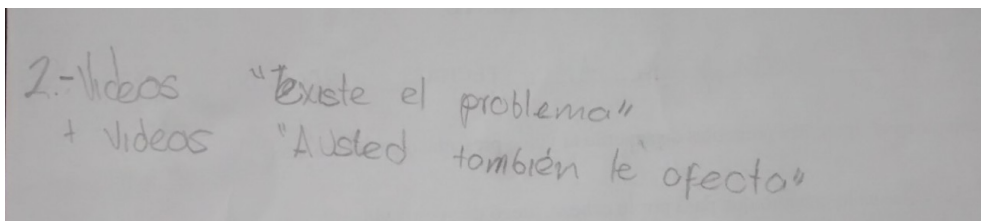 2.- Videos "Existe el problema"
+ videos "A usted también le afecta"